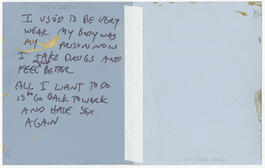 I USED TO BE VERY
WEAK MY BODY WAS
MY PRISON NOW
I TAKE DRUGS AND
FEEL BETTER
ALL I WANT TO DO
IS TO GO BACK TO WORK
AND HAVE SEX
AGAIN